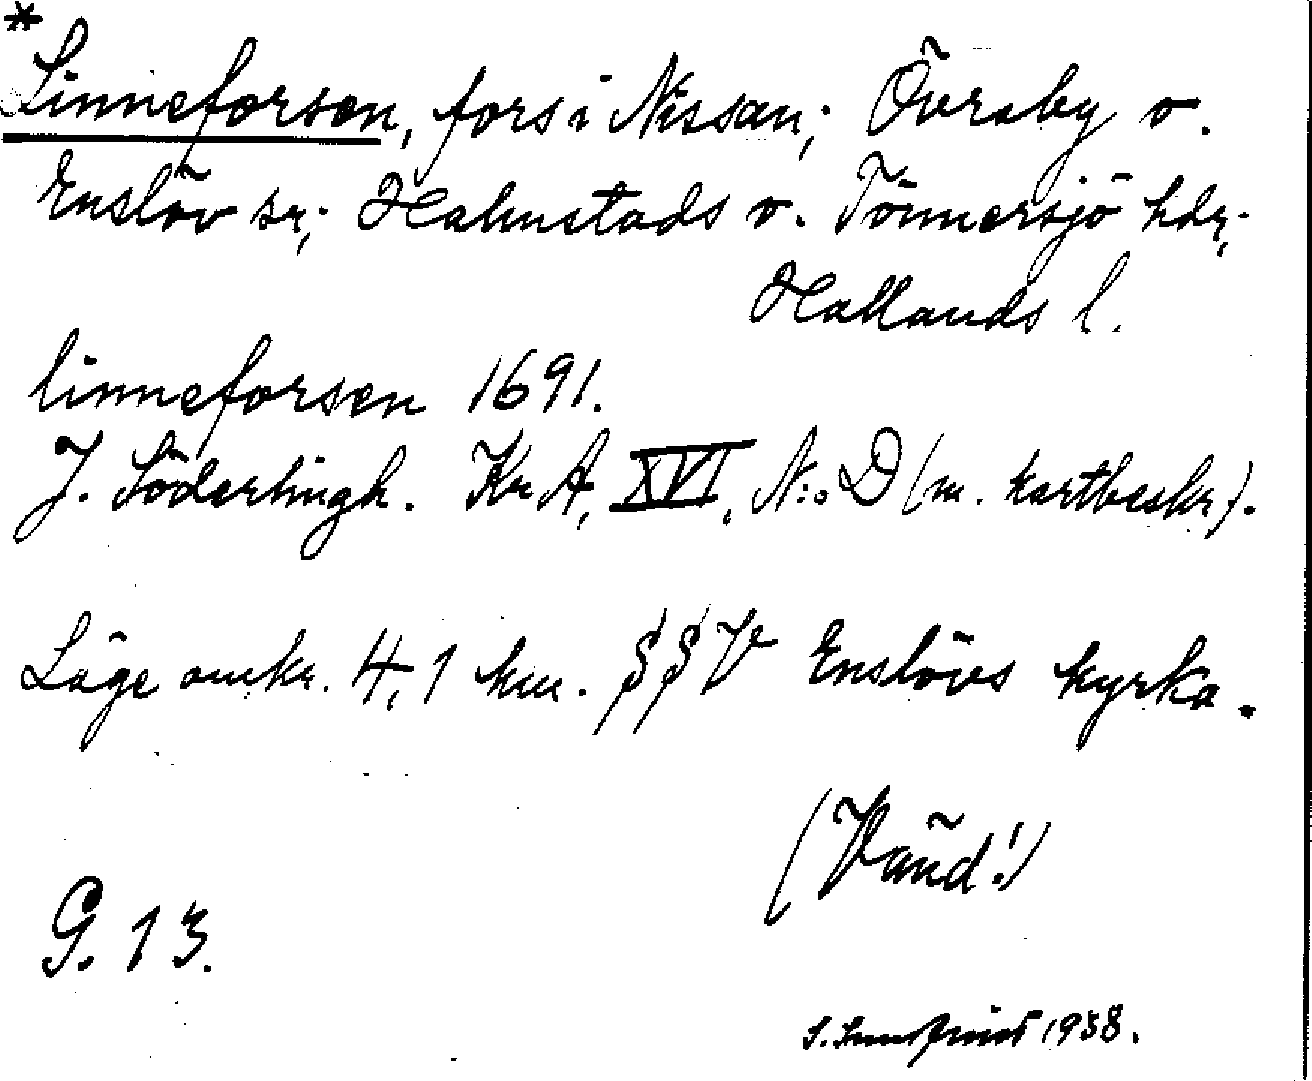 *
Linneforsen, fors i Nissan; Övraby o.
Enslöv sr; Halmstads o. Tönnersjö hdr,
Hallands l.
linneforsen 1691.
J. Söderlingh. Kr A, XVI, N:o D (m. kartbeskr).
Läge omkr. 4,1 km. SSV Enslövs kyrka.
(Vänd!)
G. 13.
S. 1938.